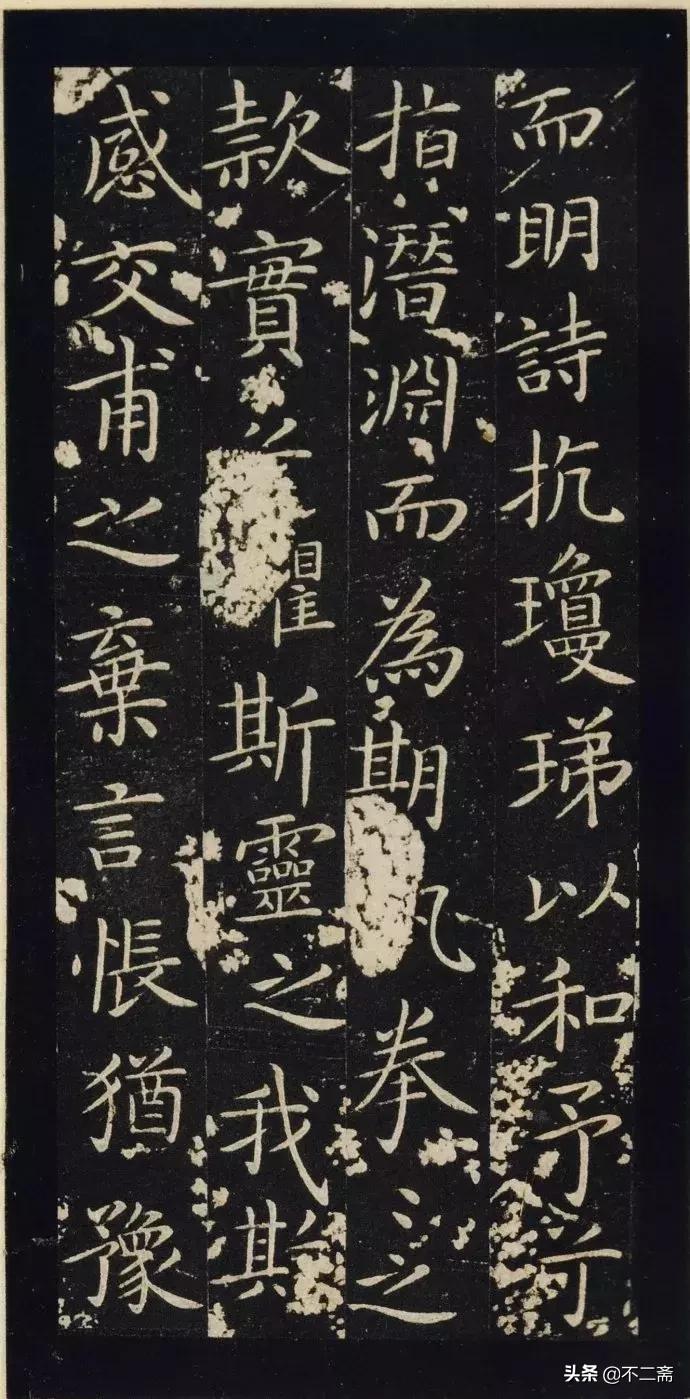 而明詩抗瓊珶以和予兮
指潛淵而為期拳〻之
款實斯靈之我
感交甫之棄言悵猶豫
头条 @不二斋